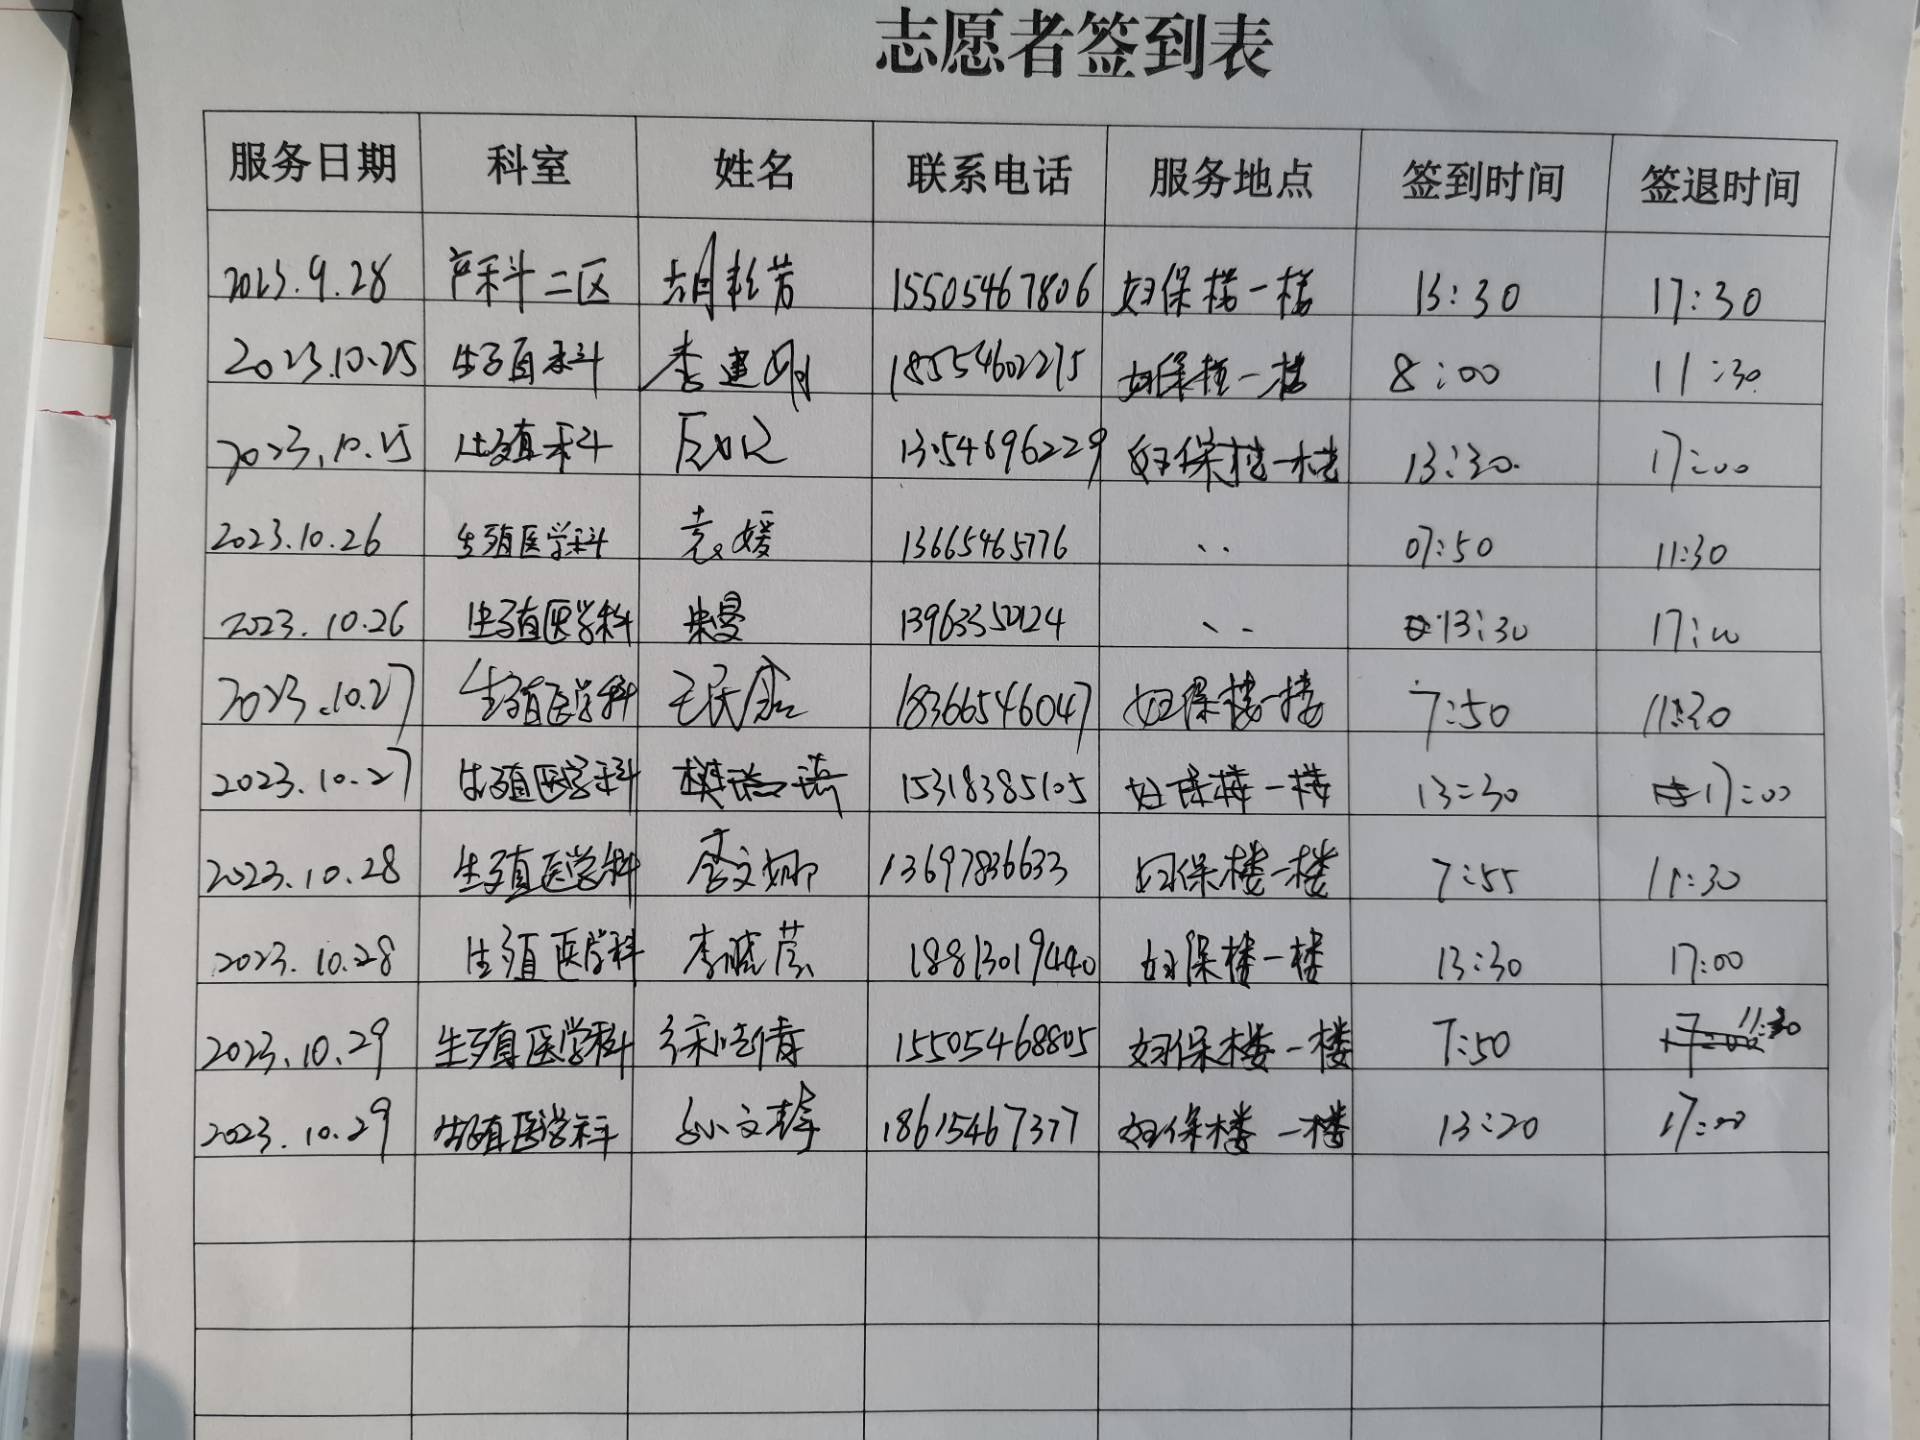 志愿者签到表
服务日期 科室 姓名 联系电话 服务地点 签到时间 签退时间
2023.9.28 产科二区 胡 芳 15505467806 妇保楼一楼 13:30 17:30
2023.10.25 生殖科 李建刚 18554602275 妇保楼一楼 8:00 11:30
2023.10.25 生殖科 13.54696229 妇保楼一楼 13:30 17:00
2023.10.26 生殖医学科 袁媛 13665465776 、、 07:50 11:30
2023.10.26 生殖医学科 朱曼 、、 13:30 17:00
2023.10.27 生殖医学科 18366546047 妇保楼一楼 7:50 11:30
2023.10.27 生殖医学科 樊瑞琦 15318385105 妇保楼一楼 13:30 17:00
2023.10.28 生殖医学科 李文娜 13697836633 妇保楼一楼 7:55 11:30
2023.10.28 生殖医学科 李晓芸 18813019440 妇保楼一楼 13:30 17:00
2023.10.29 生殖医学科 徐倩 15505468805 妇保楼一楼 7:50 11:30
2023.10.29 生殖医学科 孙文 18615467377 妇保楼一楼 13:20 17:00